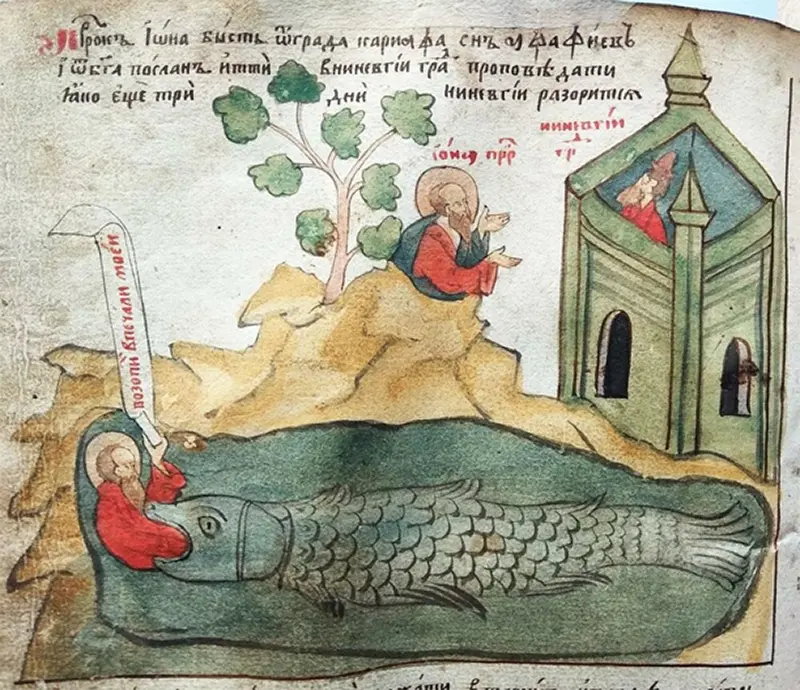 Пррокъ Іѡна бысть ѿграда кариаѳа снъ амаѳиевъ
і ѿбга посланъ итти вниневгїи гра проповѣдати
ꙗко еще три дни ниневгїи разоритися
іѡна прр
ниневгїи
гр
возопи впечали моеи